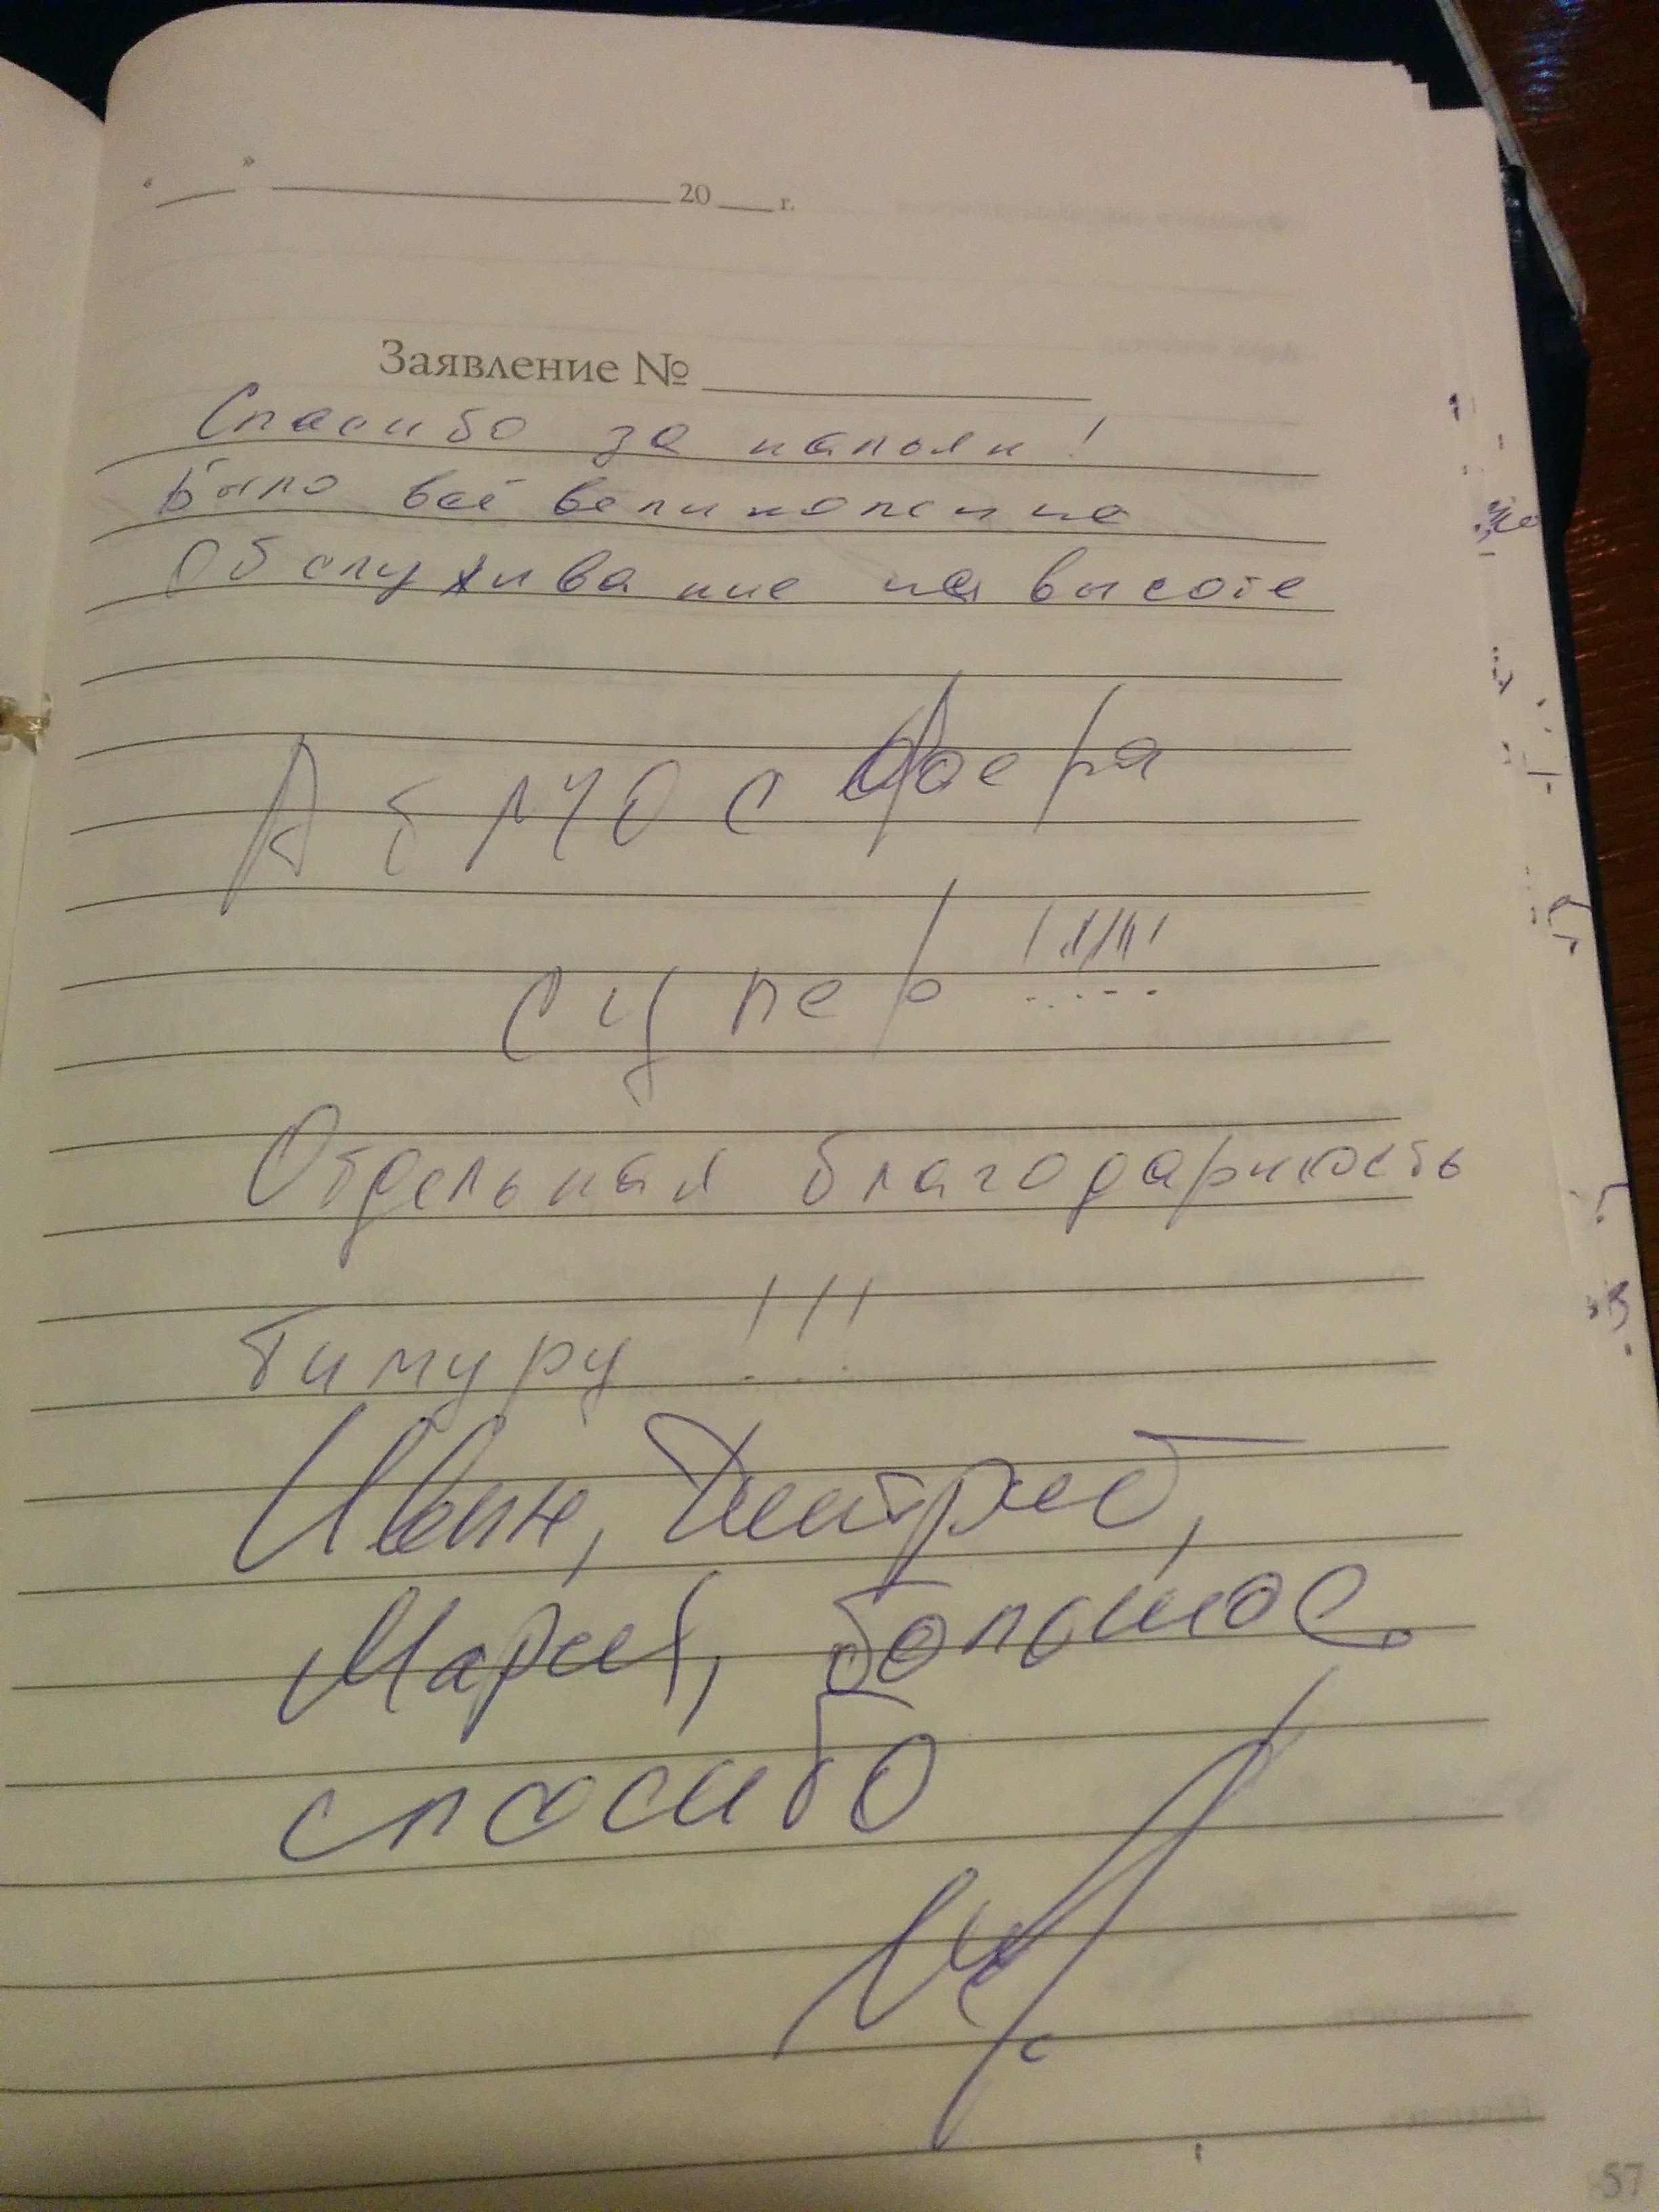 « ____ » ______________ 20 ___ г.
Заявление № ______________
Спасибо за кальян!
Было всё великолепно
Обслуживание на высоте
Атмосфера
супер !!!!!!
Отдельная благодарность
Тимуру !!!
Иван, Дмитрий,
Мария, большое
спасибо
57